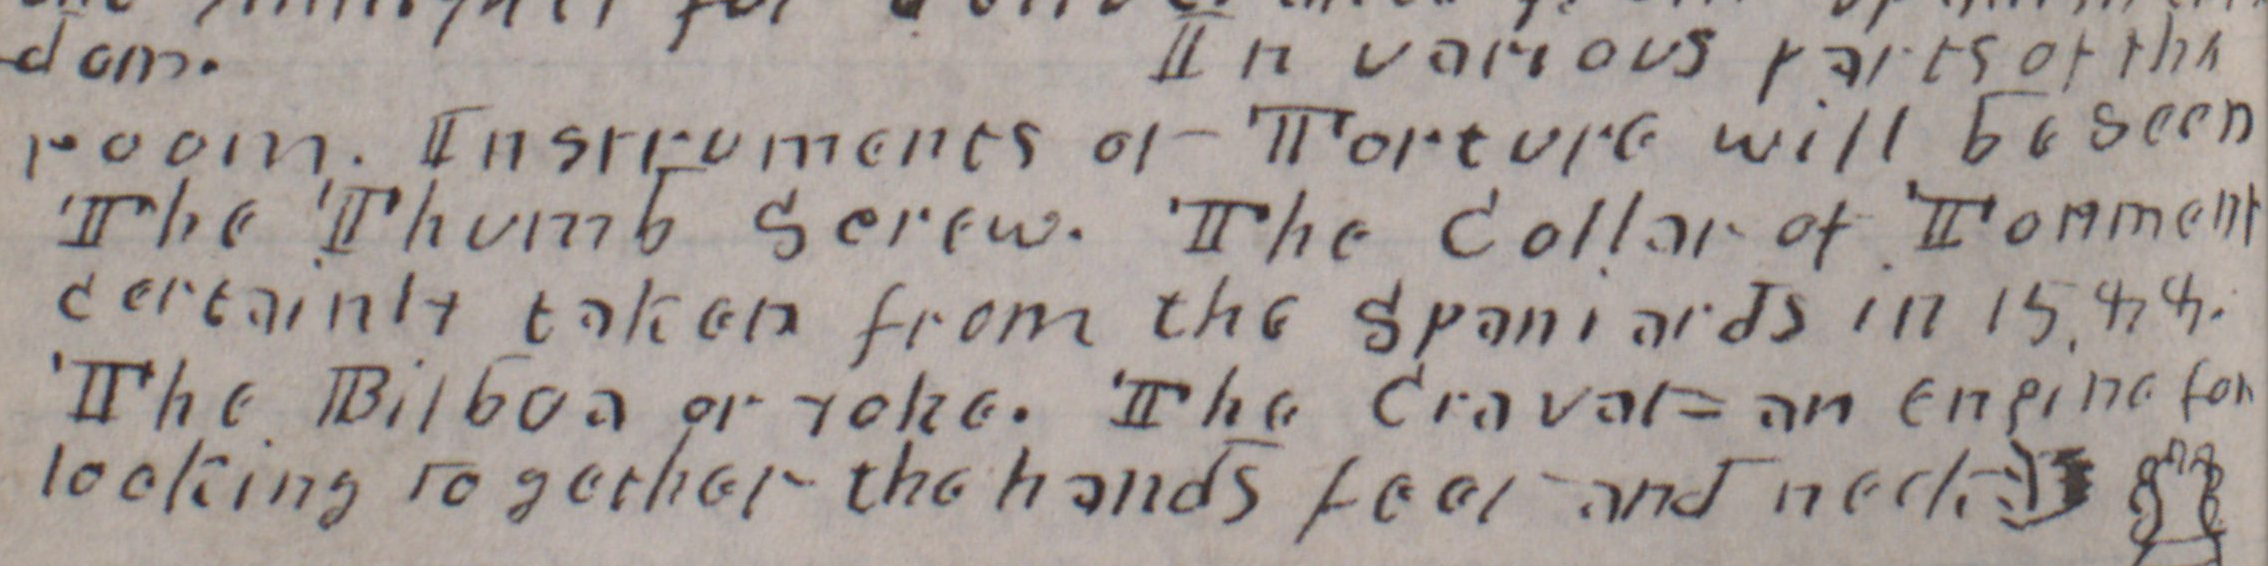 dom. In various parts of the
room. Instruments of Torture will be seen
The Thumb Screw. The Collar of Torment
certainly taken from the Spaniards in 15,44.
The Bilboa or yoke. The Cravat = an engine for
locking together the hands feet and neck